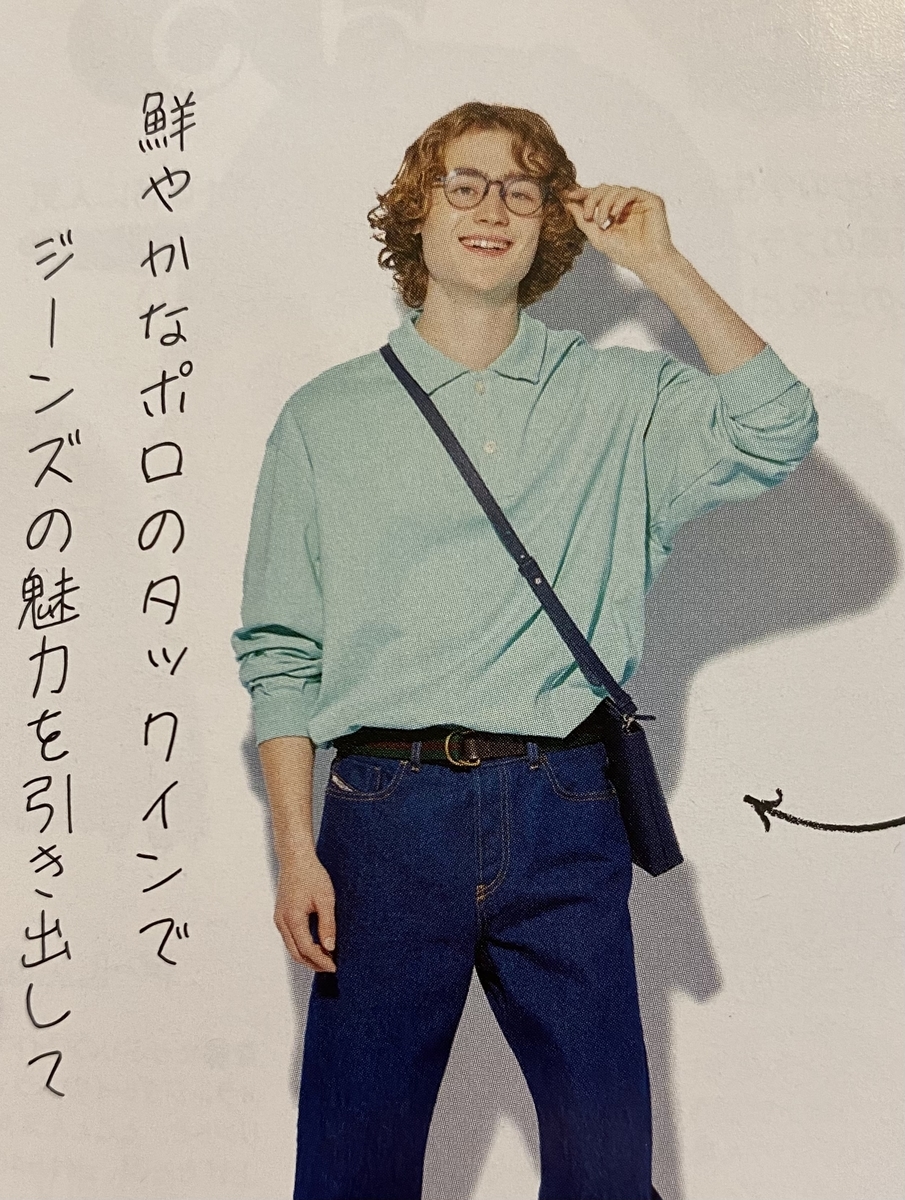 鮮やかなポロのタックインで
ジーンズの魅力を引き出して